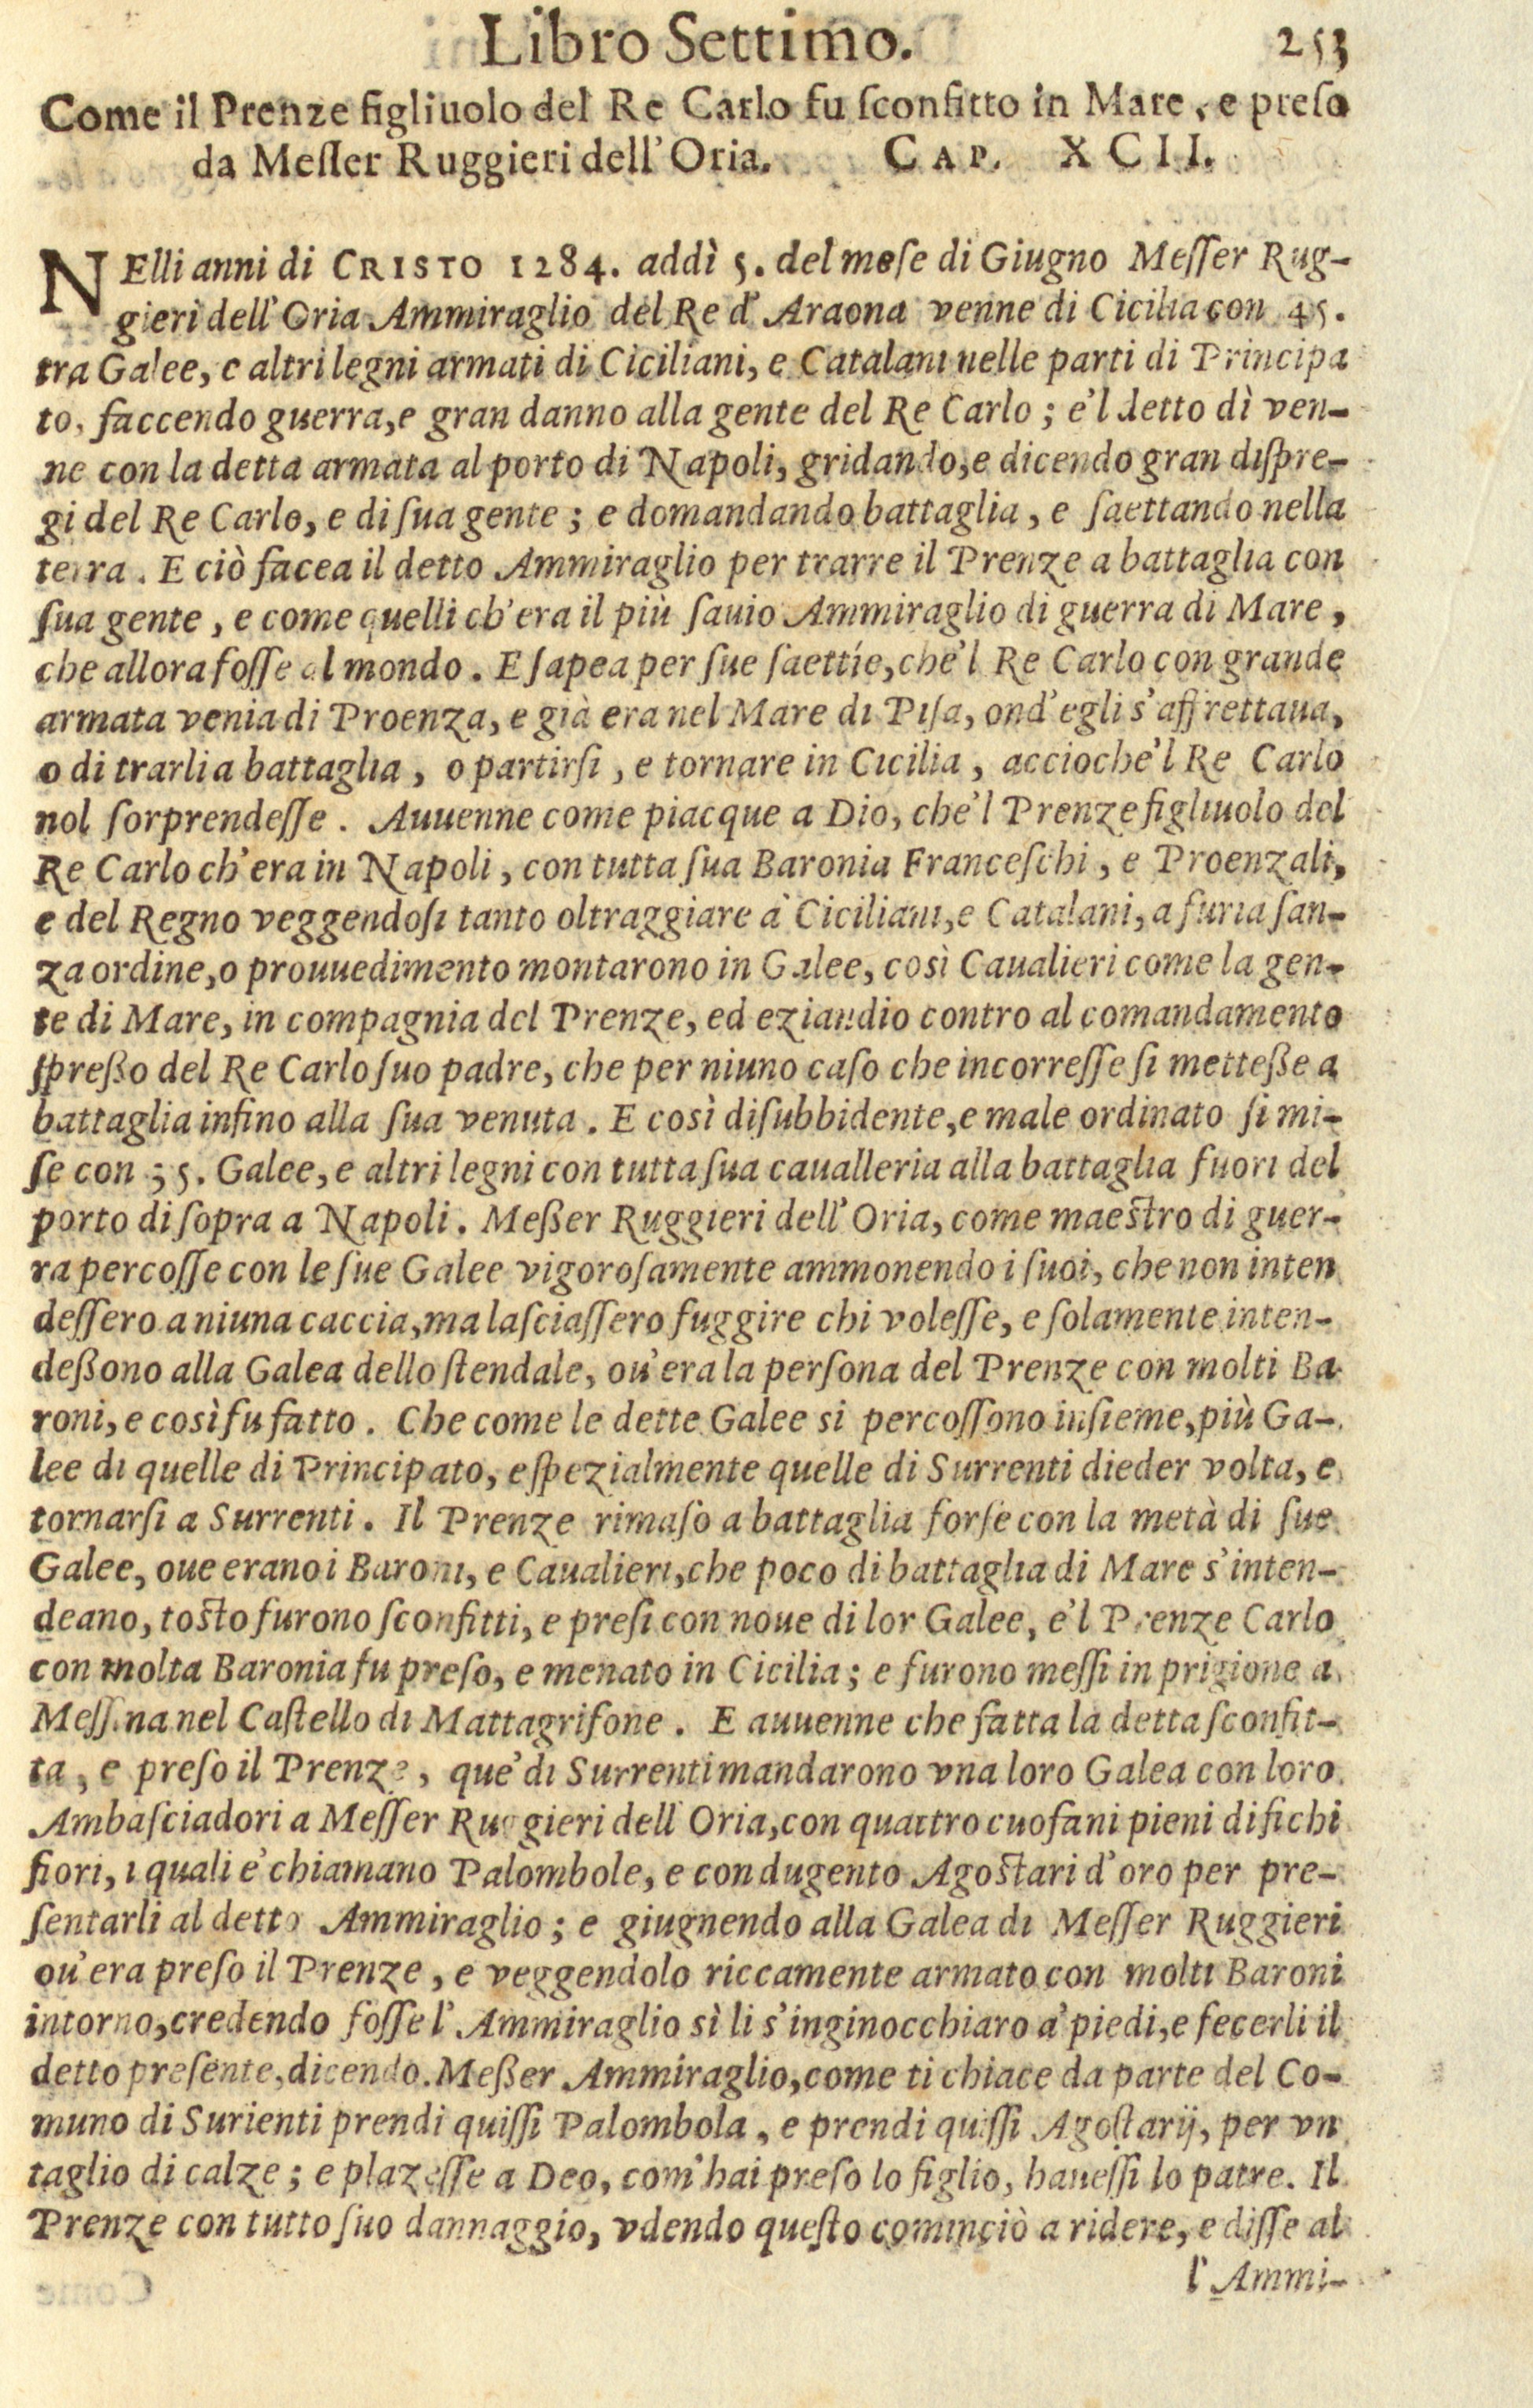 Libro Settimo. 253
Come il Prenze figliuolo del Re Carlo fu ſconfitto in Mare, e preſo
da Meſſer Ruggieri dell'Oria. CAP. XCII.
NElli anni di CRISTO 1284. addì 5. del meſe di Giugno Meſſer Rug-
gieri dell'Oria Ammiraglio del Re d'Araona venne di Cicilia con 45.
tra Galee, e altri legni armati di Ciciliani, e Catalani nelle parti di Principa
to, faccendo guerra, e gran danno alla gente del Re Carlo; e'l detto dì ven-
ne con la detta armata al porto di Napoli, gridando, e dicendo gran diſpre-
gi del Re Carlo, e di ſua gente; e domandando battaglia, e ſaettando nella
terra. E ciò facea il detto Ammiraglio per trarre il Prenze a battaglia con
ſua gente, e come quelli ch'era il più ſauio Ammiraglio di guerra di Mare,
che allora foſſe al mondo. E ſapea per ſue ſaettíe, che'l Re Carlo con grande
armata venia di Proenza, e già era nel Mare di Piſa, ond'egli s'affrettaua,
o di trarli a battaglia, o partirſi, e tornare in Cicilia, accioche'l Re Carlo
nol ſorprendeſſe. Auuenne come piacque a Dio, che'l Prenze figliuolo del
Re Carlo ch'era in Napoli, con tutta ſua Baronia Franceſchi, e Proenzali,
e del Regno veggendoſi tanto oltraggiare a' Ciciliani, e Catalani, a furia ſan-
za ordine, o prouuedimento montarono in Galee, così Caualieri come la gen-
te di Mare, in compagnia del Prenze, ed eziandio contro al comandamento
ſpreßo del Re Carlo ſuo padre, che per niuno caſo che incorreſſe ſi metteße a
battaglia infino alla ſua venuta. E così diſubbidente, e male ordinato ſi mi-
ſe con 35. Galee, e altri legni con tutta ſua caualleria alla battaglia fuori del
porto di ſopra a Napoli. Meßer Ruggieri dell'Oria, come maeſtro di guer-
ra percoſſe con le ſue Galee vigoroſamente ammonendo i ſuoi, che non inten
deſſero a niuna caccia, ma laſciaſſero fuggire chi voleſſe, e ſolamente inten-
deßono alla Galea dello ſtendale, ou'era la perſona del Prenze con molti Ba
roni, e così fu fatto. Che come le dette Galee si percoſſono inſieme, più Ga-
lee di quelle di Principato, e ſpezialmente quelle di Surrenti dieder volta, e
tornarſi a Surrenti. Il Prenze rimaſo a battaglia forſe con la metà di ſue
Galee, oue erano i Baroni, e Caualieri, che poco di battaglia di Mare s'inten-
deano, toſto furono ſconfitti, e preſi con noue di lor Galee, e'l Prenze Carlo
con molta Baronia fu preſo, e menato in Cicilia; e furono meſſi in prigione a
Meſſina nel Caſtello di Mattagrifone. E auuenne che fatta la detta ſconfit-
ta, e preſo il Prenze, que' di Surrenti mandarono vna loro Galea con loro
Ambaſciadori a Meſſer Ruggieri dell Oria, con quattro cuofani pieni di fichi
fiori, i quali e' chiamano Palombole, e con dugento Agoſtari d'oro per pre-
ſentarli al detto Ammiraglio; e giugnendo alla Galea di Meſſer Ruggieri
ou'era preſo il Prenze, e veggendolo riccamente armato con molti Baroni
intorno, credendo foſſe l'Ammiraglio sì li s'inginocchiaro a' piedi, e fecerli il
detto preſente, dicendo. Meßer Ammiraglio, come ti chiace da parte del Co-
muno di Surienti prendi quiſſi Palombola, e prendi quiſſi Agoſtarij, per vn
taglio di calze; e plazeſſe a Deo, com'hai preſo lo figlio, haueſſi lo patre. Il
Prenze con tutto ſuo dannaggio, vdendo queſto cominciò a ridere, e diſſe al
l'Ammi-